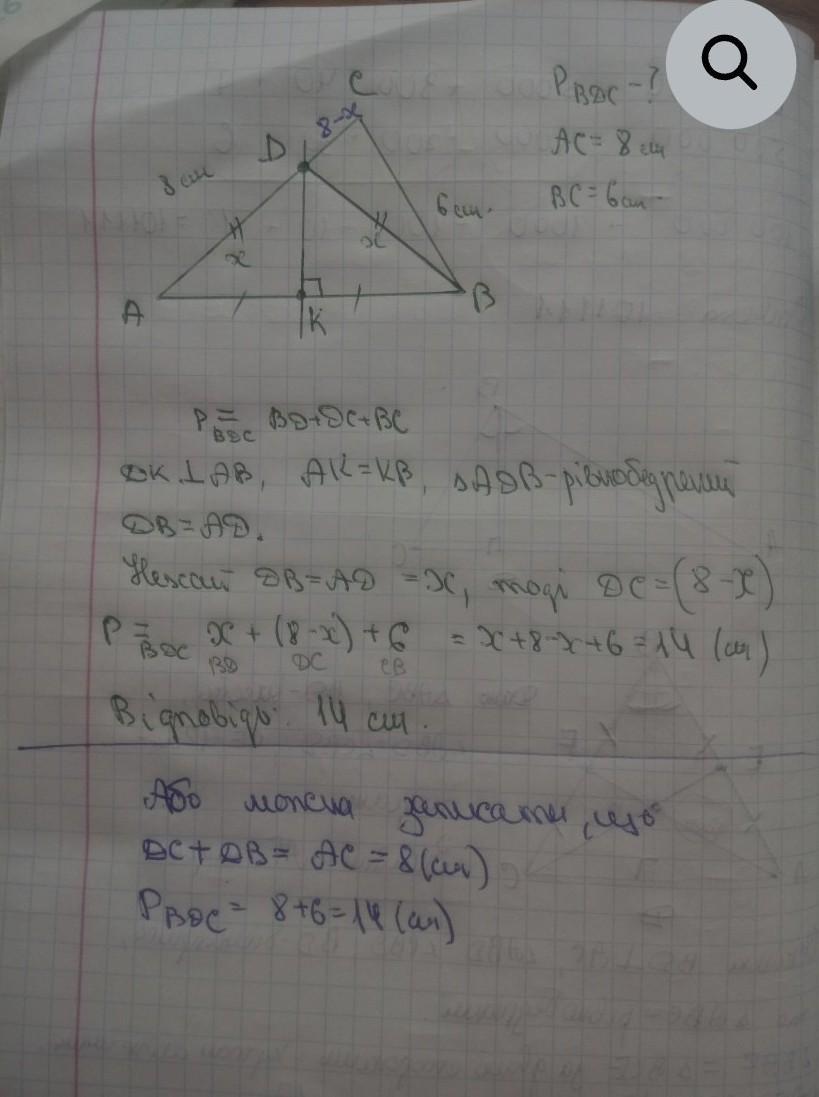 P BDC - ?
AC = 8 см
BC = 6 см
C
8-x
D
8 см
6 см.
x
x
A
K
B
P BDC = BD+DC+BC
DK⊥AB, AK=KB, ΔADB-рівнобедрений
DB=AD.
Нехай DB=AD =x, тоді DC=(8-x)
P BDC = x + (8-x) + 6 = x+8-x+6=14 (см)
BD DC CB
Відповідь: 14 см.
Або можна записати, що
DC+DB= AC = 8(см)
P BDC = 8+6=14(см)